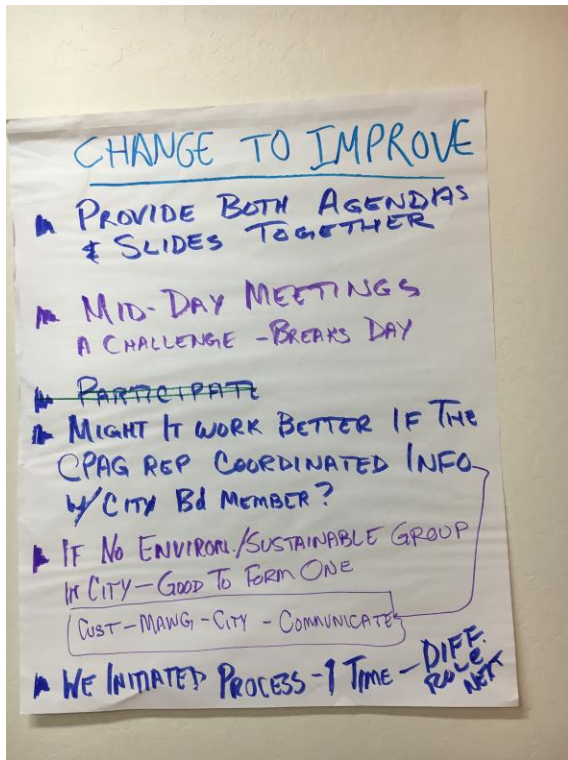 CHANGE TO IMPROVE
PROVIDE BOTH AGENDAS
& SLIDES TOGETHER
MID-DAY MEETINGS
A CHALLENGE - BREAKS DAY
PARTICIPATE
MIGHT IT WORK BETTER IF THE
CPAG REP COORDINATED INFO
w/ CITY Bd MEMBER?
IF NO ENVIRON./SUSTAINABLE GROUP
IN CITY - GOOD TO FORM ONE
CUST - MAWG - CITY - COMMUNICATE
WE INITIATED PROCESS - 1 TIME - DIFF.
ROLE
NEXT